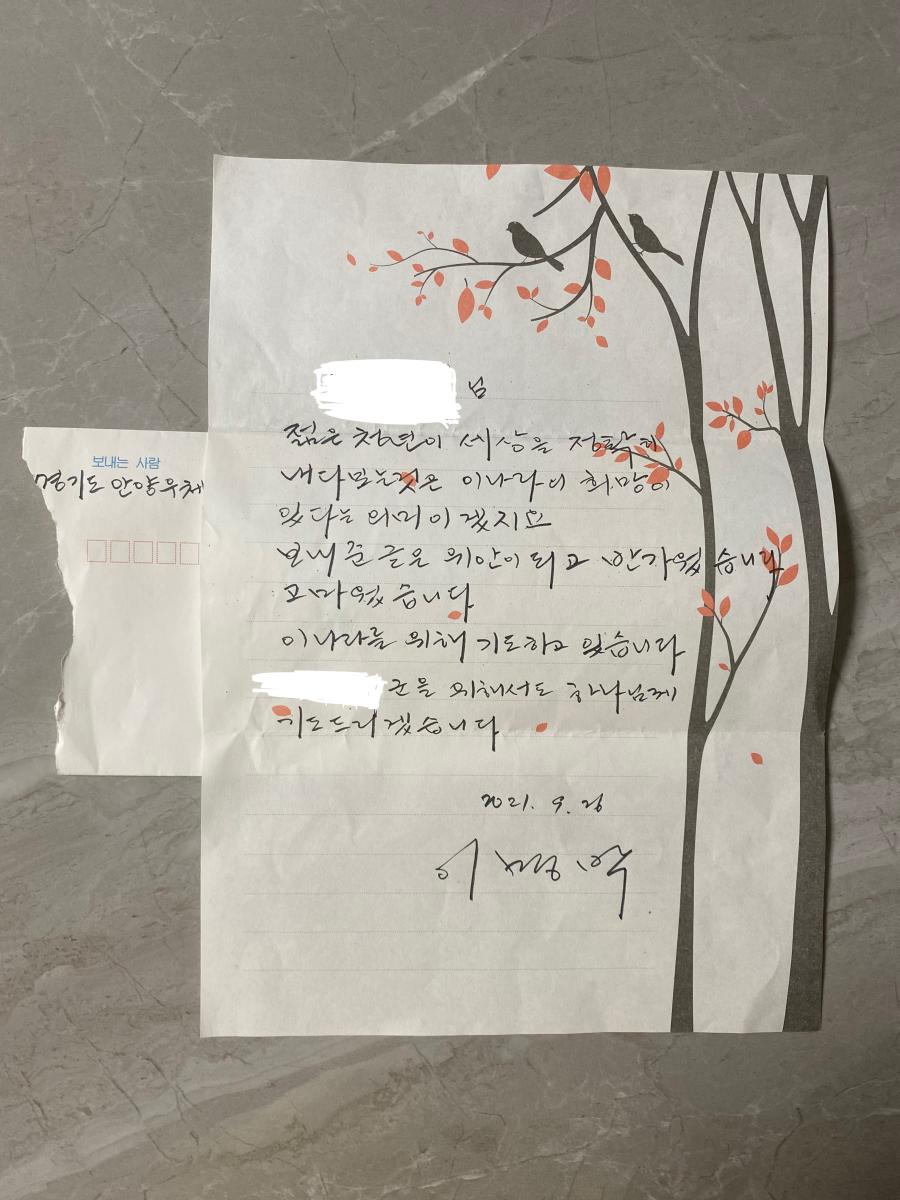 보내는 사람
경기도 안양우체
님
젊은 청년이 세상을 정확히
내다보는것은 이나라에 희망이
있다는 의미이겠지요
보내준 글은 위안이 되고 반가웠습니다
고마웠습니다
이나라를 위해 기도하고 있습니다
군을 위해서도 하나님께
기도드리겠습니다
2021. 9. 26
이명박